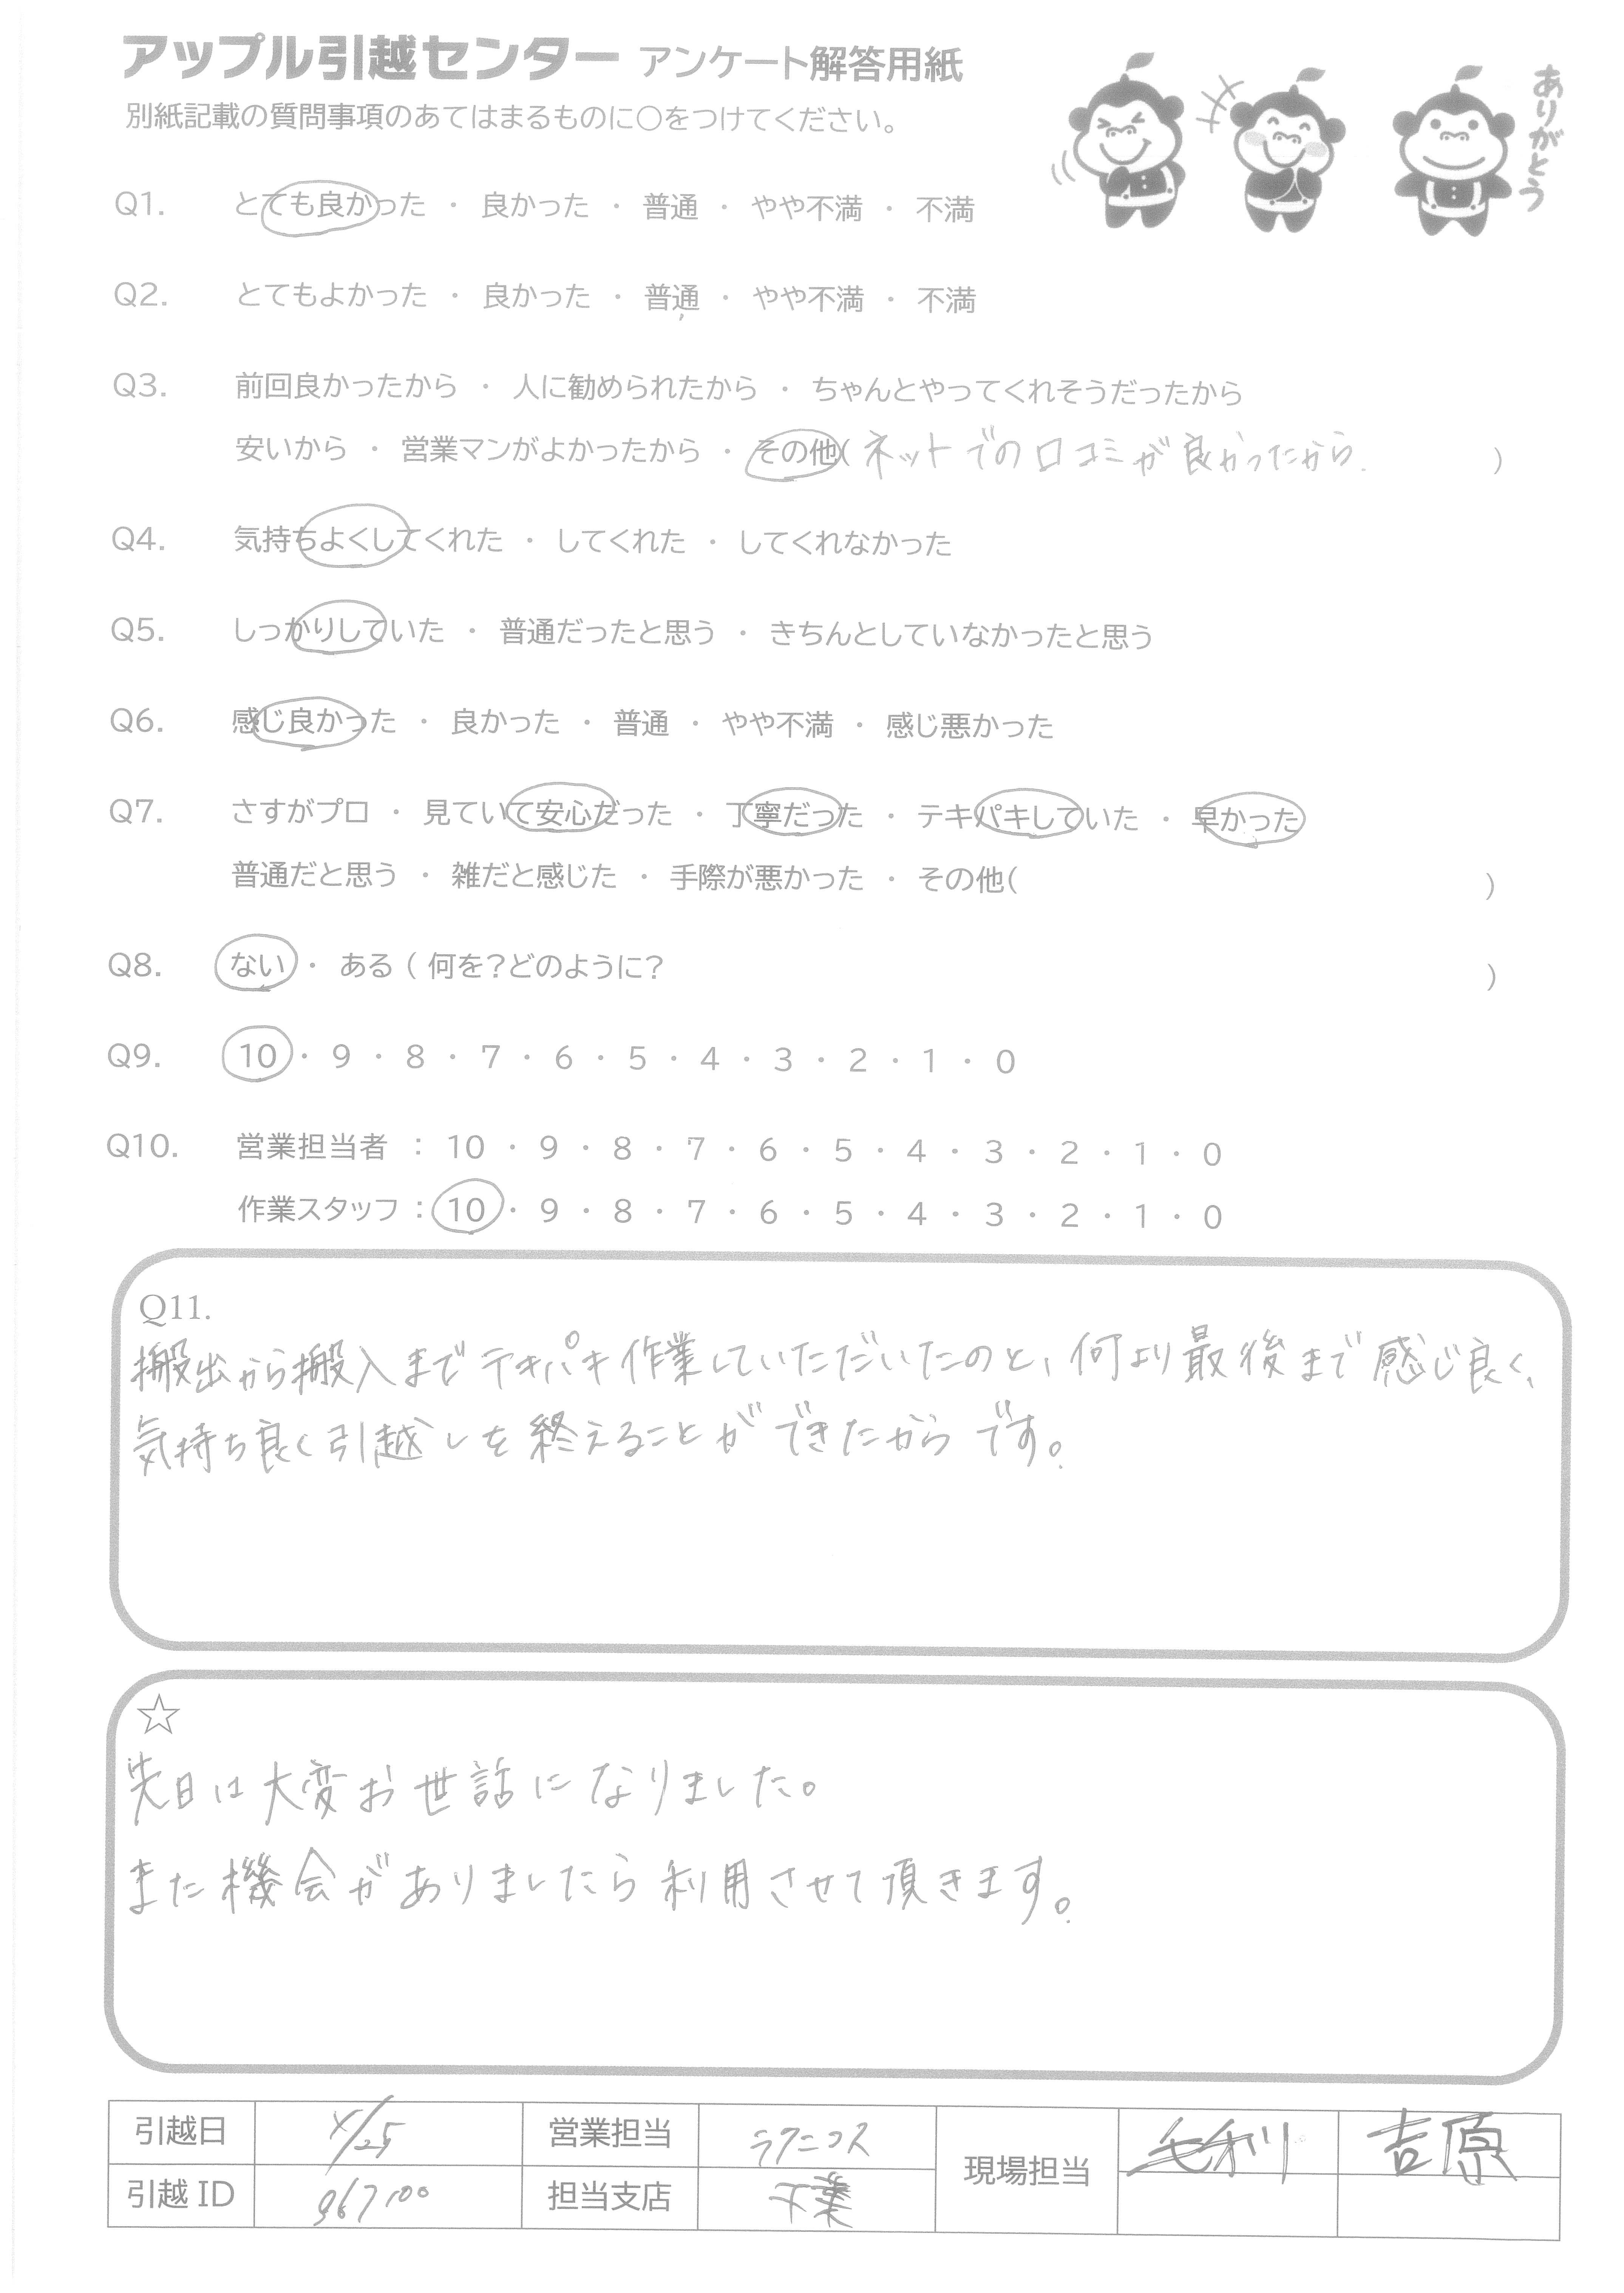 アップル引越センター アンケート解答用紙
別紙記載の質問事項のあてはまるものに○をつけてください。
ありがとう
Q1. とても良かった ・ 良かった ・ 普通 ・ やや不満 ・ 不満
Q2. とてもよかった ・ 良かった ・ 普通 ・ やや不満 ・ 不満
Q3. 前回良かったから ・ 人に勧められたから ・ ちゃんとやってくれそうだったから
安いから ・ 営業マンがよかったから ・ その他( ネットでの口コミが良かったから. )
Q4. 気持ちよくしてくれた ・ してくれた ・ してくれなかった
Q5. しっかりしていた ・ 普通だったと思う ・ きちんとしていなかったと思う
Q6. 感じ良かった ・ 良かった ・ 普通 ・ やや不満 ・ 感じ悪かった
Q7. さすがプロ ・ 見ていて安心だった ・ 丁寧だった ・ テキパキしていた ・ 早かった
普通だと思う ・ 雑だと感じた ・ 手際が悪かった ・ その他( )
Q8. ない ・ ある ( 何を?どのように? )
Q9. 10 ・ 9 ・ 8 ・ 7 ・ 6 ・ 5 ・ 4 ・ 3 ・ 2 ・ 1 ・ 0
Q10. 営業担当者 : 10 ・ 9 ・ 8 ・ 7 ・ 6 ・ 5 ・ 4 ・ 3 ・ 2 ・ 1 ・ 0
作業スタッフ : 10 ・ 9 ・ 8 ・ 7 ・ 6 ・ 5 ・ 4 ・ 3 ・ 2 ・ 1 ・ 0
Q11.
搬出から搬入までテキパキ作業していただいたのと、何より最後まで感じ良く、
気持ち良く引越しを終えることができたからです。
☆
先日は大変お世話になりました。
また機会がありましたら利用させて頂きます。
引越日 4/25 営業担当 ラクニコス 現場担当 毛利 吉原
引越 ID 967100 担当支店 千葉